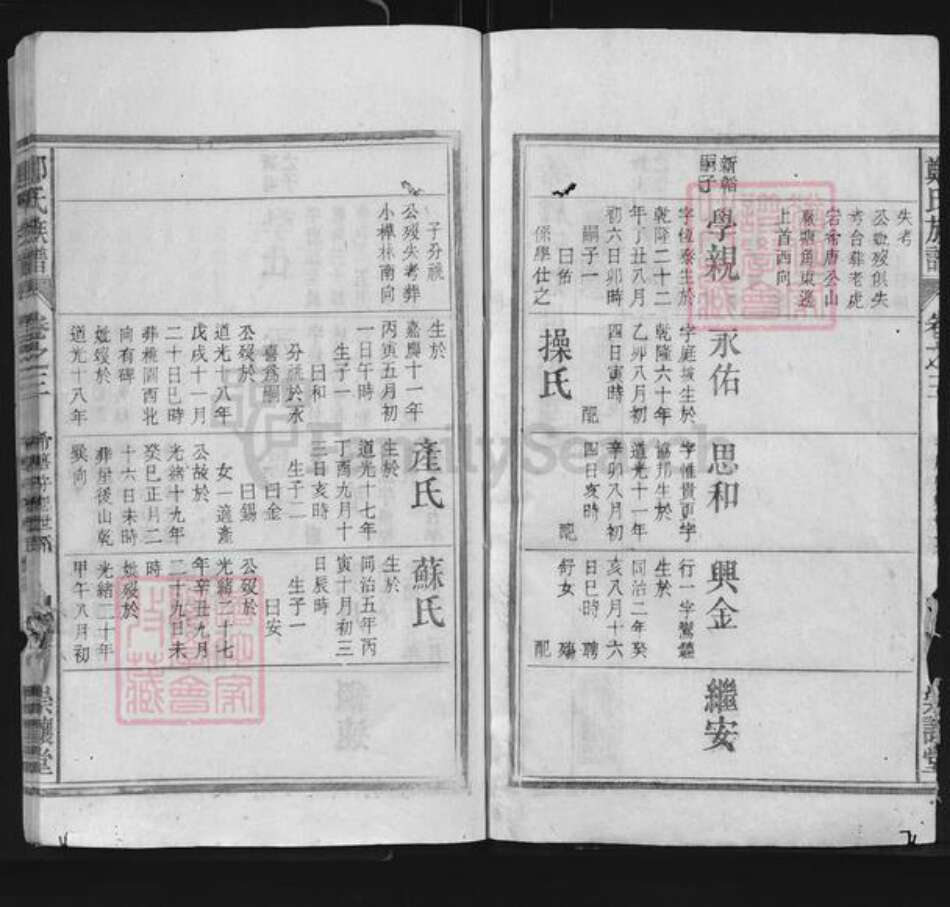 鄭氏族譜
卷之三
崇讓堂
失考
公妣歿俱失
考合葬老虎
宕帝唐公山
廟塘角東邊
上首西向
新韜
嗣子
學親
字位泰生於
乾隆二十二
年丁丑八月
初六日卯時
嗣子一
曰佑
係學仕之
永佑
字庭坡生於
乾隆六十年
乙卯八月初
四日寅時
配
操氏
思和
字惟貴更字
協邦生於
道光十一年
辛卯八月初
四日亥時
配
興金
行一字鸞鑣
生於
同治二年癸
亥八月十六
日巳時 聘
舒女 殤
配
繼安
子分親
公歿失考葬
小樺林南向
生於
嘉慶十一年
丙寅五月初
一日午時
生子一
曰和
分親於永
喜為嗣
公歿於
道光十八年
戊戌十一月
二十日巳時
葬桃園西北
向有碑
妣歿於
道光十八年
產氏
生於
道光十七年
丁酉九月十
三日亥時
生子二
曰金
曰錫
女一適產
公故於
光緒十九年
癸巳正月二
十六日未時
葬屋後山乾
巽向
蘇氏
生於
同治五年丙
寅十月初三
日辰時
生子一
曰安
公歿於
光緒二十七
年辛丑九月
二十九日未
時
妣歿於
光緒二十年
甲午八月初
鄭氏族譜
卷之三
崇讓堂